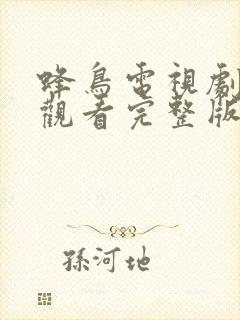 蜂鳥電視劇
觀看完整版
孫河地